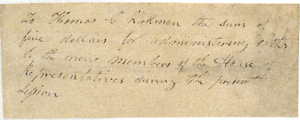 To Thomas C Hickman the sum of
five dollars for administering oaths
to the nine members of the House of
Representatives during the present
Session